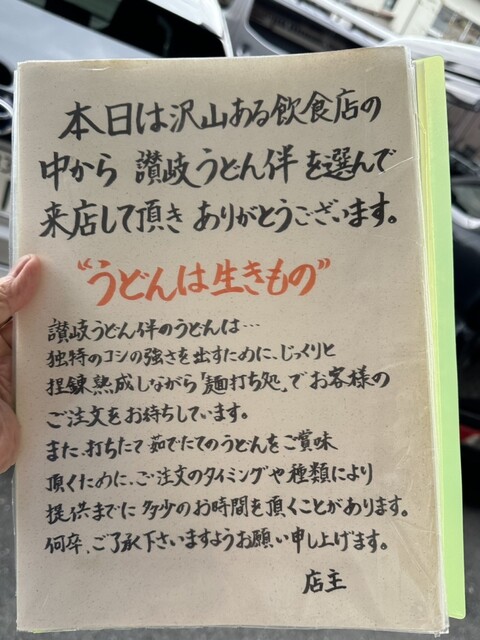 本日は沢山ある飲食店の
中から 讃岐うどん伴 を選んで
来店して頂き ありがとうございます。
“うどんは生きもの”
讃岐うどん伴のうどんは…
独特のコシの強さを出すために、じっくりと
捏錬熟成しながら「麺打ち処」でお客様の
ご注文をお待ちしています。
また、打ちたて茹でたてのうどんをご賞味
頂くために、ご注文のタイミングや種類により
提供までに多少のお時間を頂くことがあります。
何卒、ご了承下さいますようお願い申し上げます。
店主